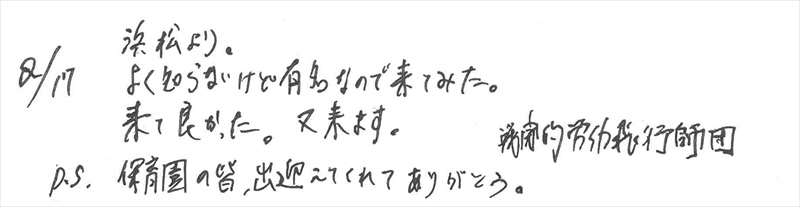 浜松より。
2/17 よく知らないけど有名なので来てみた。
来て良かった。又来ます。
戦闘的労幼稚行師団
P.S. 保育園の皆、出迎えてくれてありがとう。